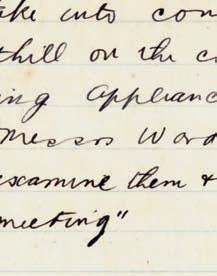 ake into con
thill on the c
ing appliance
Messrs Ward
examine them &
meeting"